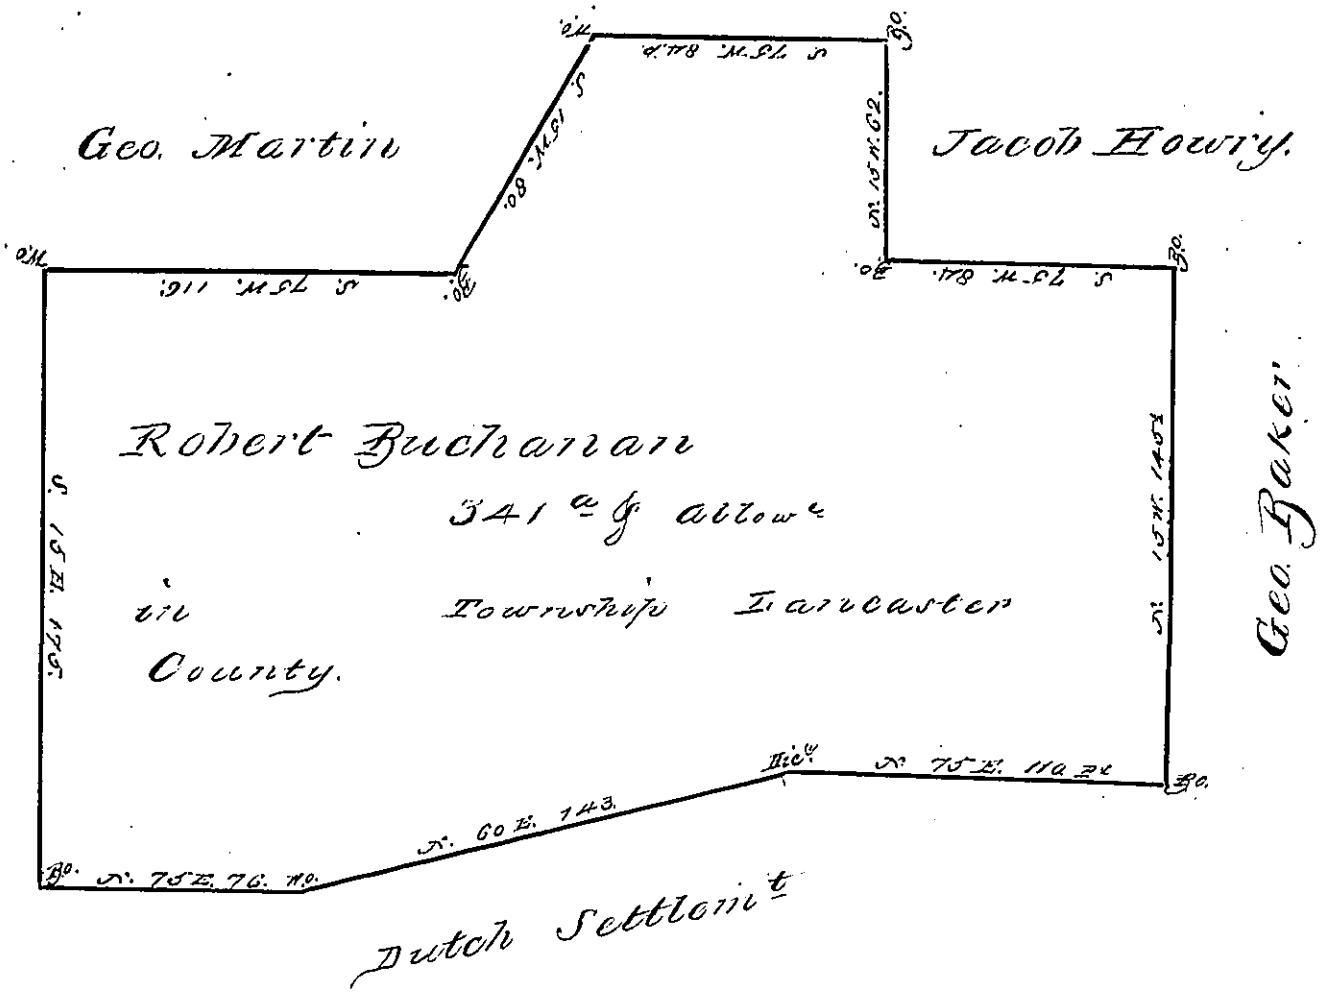 W.O.
S. 75 W. 84 p.
B.O.
Geo. Martin
S. 15 W. 80.
N. 15 W. 62.
Jacob Howry.
W.O.
S. 75 W. 116.
B.O.
B.O.
S. 75 W. 84.
B.O.
Robert Buchanan
341 a & allowe
in Township Lancaster
County.
S. 15 E. 175.
N. 15 W. 145½
Geo. Baker
Hicy.
N. 75 E. 110 Ps
B.O.
N. 60 E. 143.
B.O. N. 75 E. 76. W.O.
Dutch Settlomt